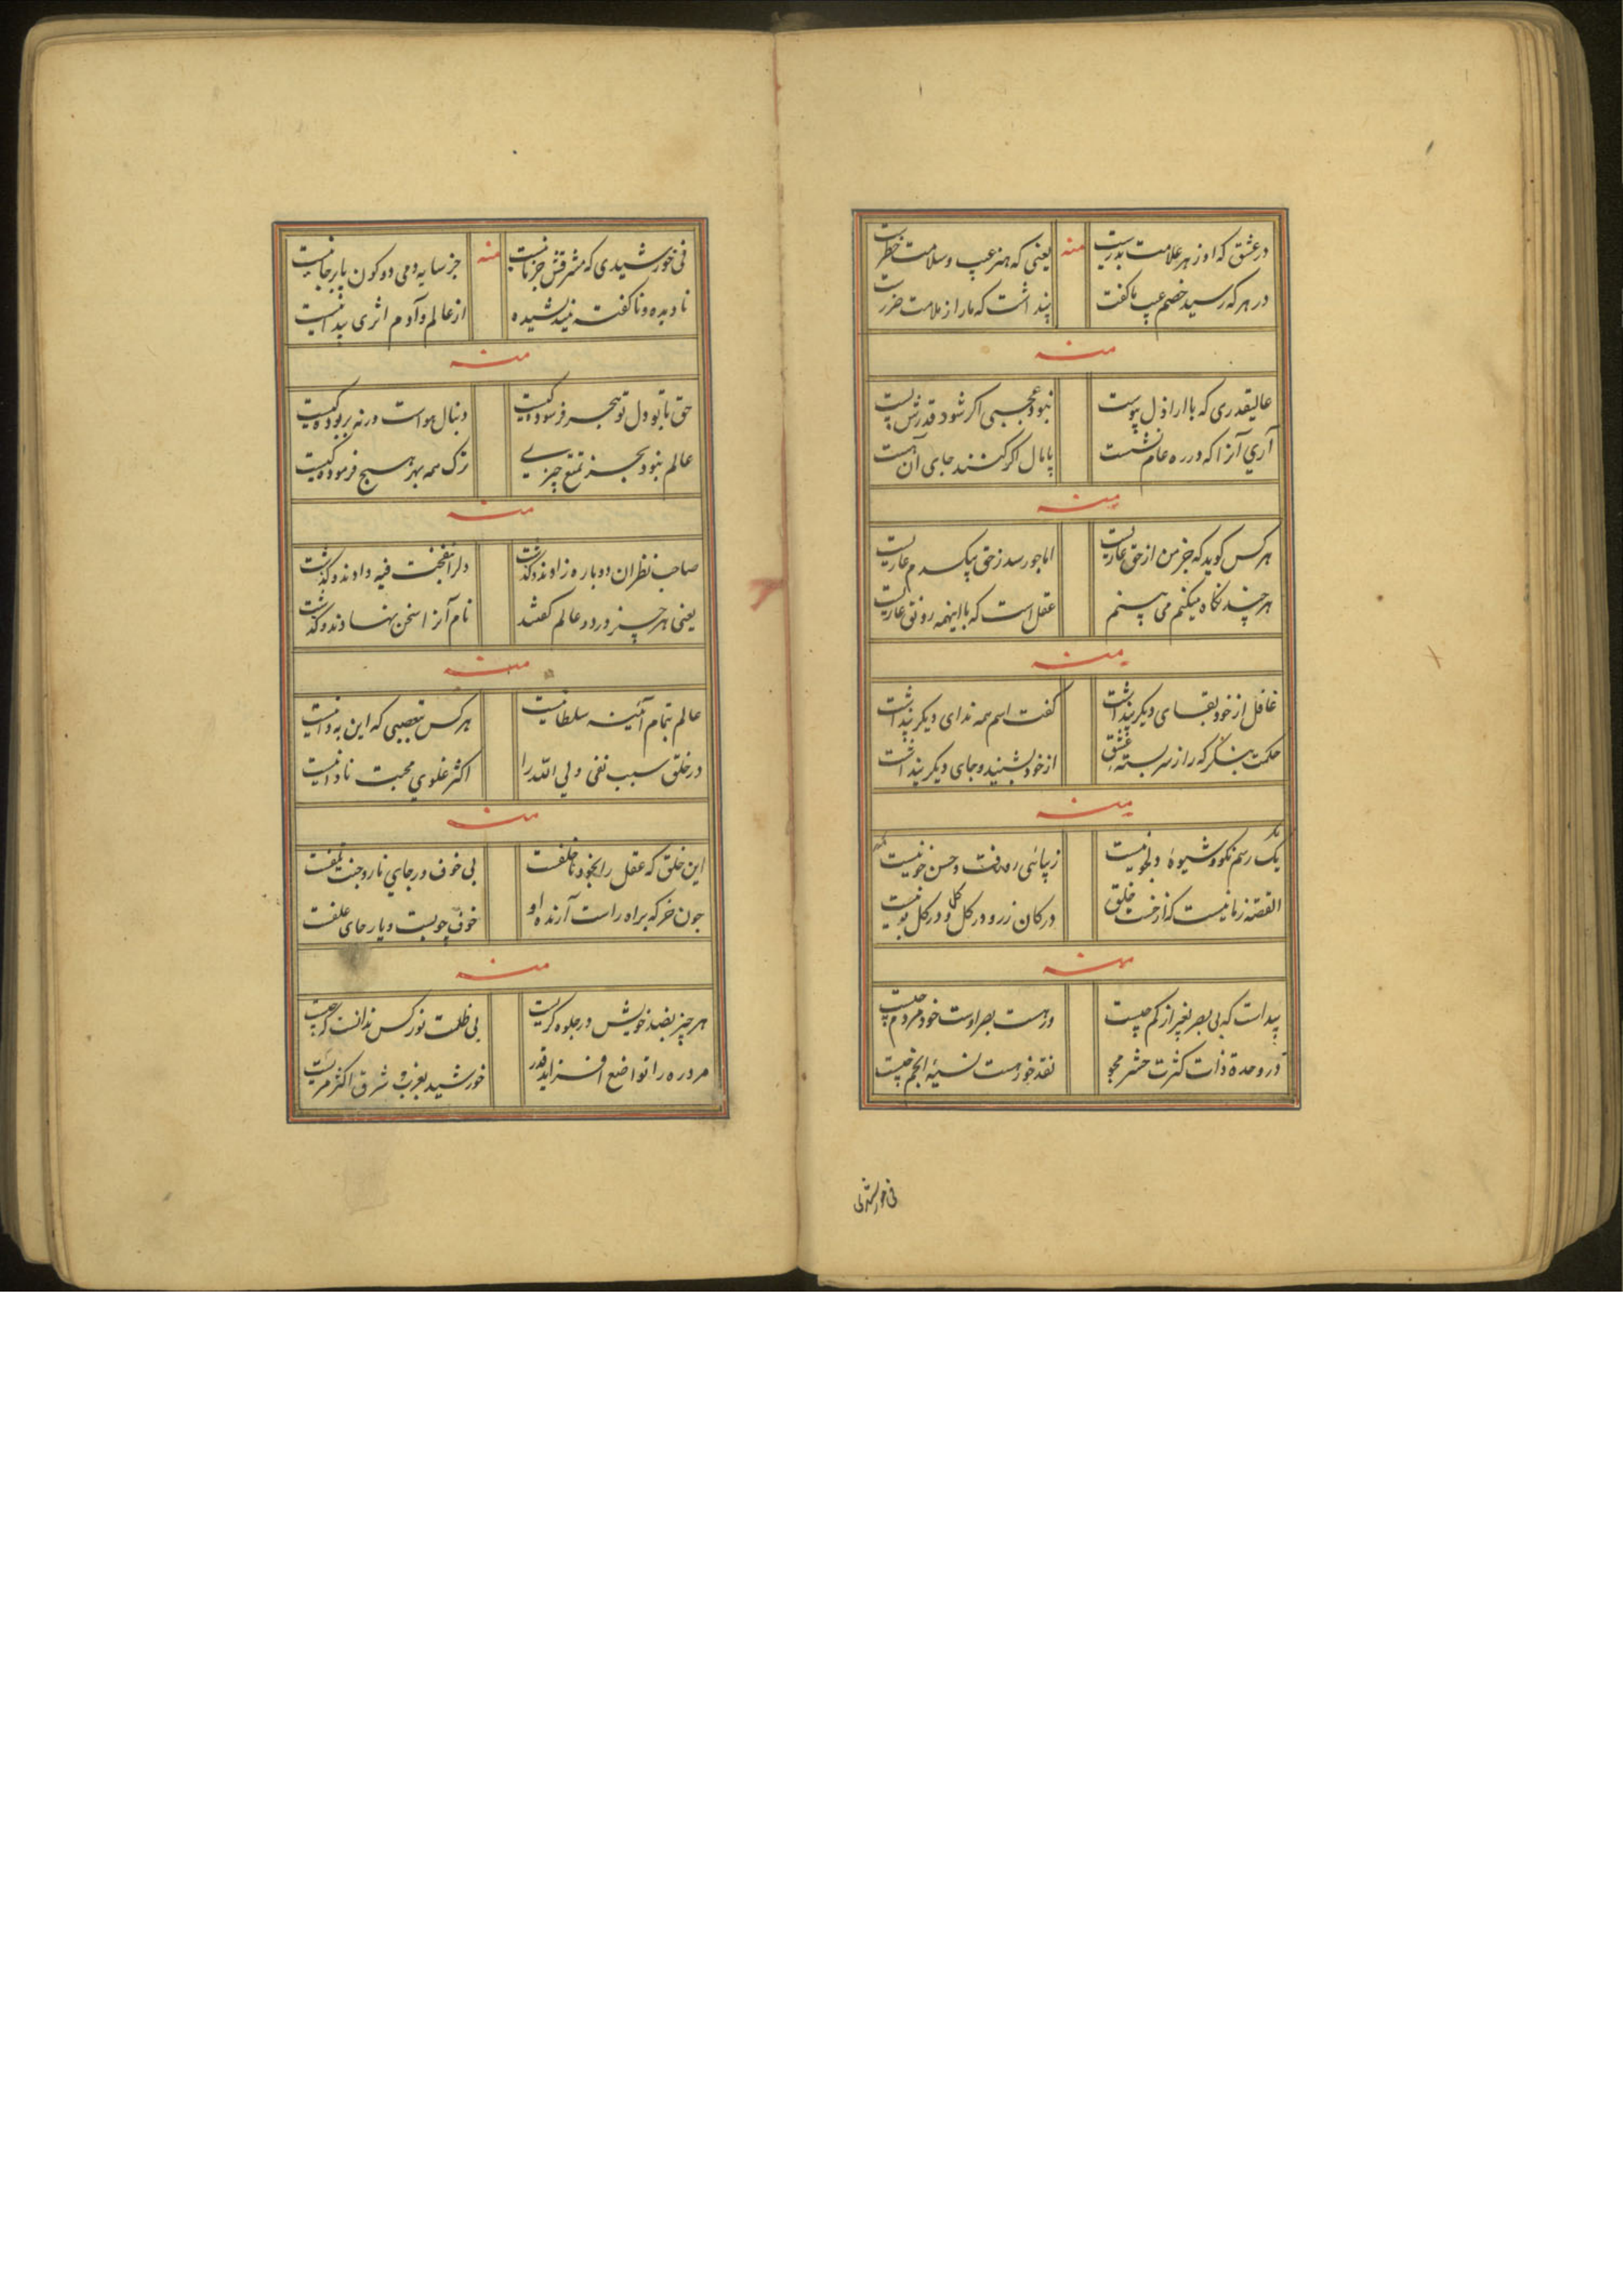 در عشق که او ز هر علامت بدرست منه یعنی که هنر عیب و سلامت خطرست
در هر که رسید خصم عیب ما گفت پنداشت که ما را ز ملامت ضررست
منه
عالیقدری که با اراذل پیوست نبود عجبی اکر شود قدرش پست
آری آنرا که در ره عام نشست پامال اکر کنند جای آن هست
منه
هر کس کوید که جز من از حق عاریست اما جو رسد ز حق بیکدم عاریست
هر چند نکاه میکنم می بینم عقل است که با اینهمه رونق عاریست
منه
غافل از خود بقای دیکر پنداشت کفت اسم همه ندای دیکر پنداشت
حکمت بنگر که راز سربسته عشق از خود بشنید و جای دیکر پنداشت
منه
یک رسم نکو و شیوه دلجو نیست زیبائی رفت و حسن خو نیست
القصه زمانیست که از خست خلق در کان زر و در کل و در کل بو نیست
منه
پیداست که بی بصر بغیر از کم چیست ور هست بصر اوست خود مردم چیست
در وحدة ذات کثرت حشر مجو نقد خور هست نسیۀ انجم چیست
فی خورشیدی
فی خورشیدی که مشرقش جز ما نیست منه جز سایه ومی دو کون پابرجا نیست
نادیده و ناکفته نیندیشیده از عالم و آدم اثری پیدا نیست
منه
حق با تو و دل تو بیجر فرسوده کیست دنبال هواست ورنه بربوده کیست
عالم نبود بجز تمتع چیزیے ترک همه بهر هیچ فرموده کیست
منه
صاحب نظران دوباره زادند و کذشت دلرا نفخت فیه دادند و کذشت
یعنی هر چیز در دو عالم کفتند نام آنرا سخن نهادند و کذشت
منه
عالم بتمام آئینه سلطانیست هر کس بتعصبی که این به دانیست
در خلق سبب نفی ولی الله را اکثر غلوی محبت نادانیست
منه
این خلق که عقل را بخود نا خلفست بی خوف و رجای نار و جنت تلفست
جون خر که براه راست آرنده او خوف جوبست و یا رجای علفست
منه
هر چیز بضد خویش در جلوه کریست بی ظلمت نور کس ندانست که چیست
هر ذره را تواضع افزاید قدر خورشید بغرب و شرق اکثر مریست